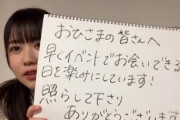 おひさまの皆さんへ
早くイベントでお会いできる
日を楽しみにしています!
照らして下さり
ありがとうございます